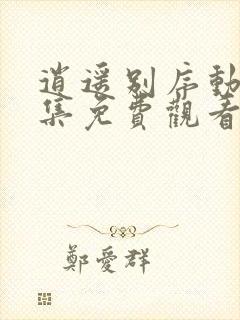 逍遥别序動
集免費觀看
鄭愛群